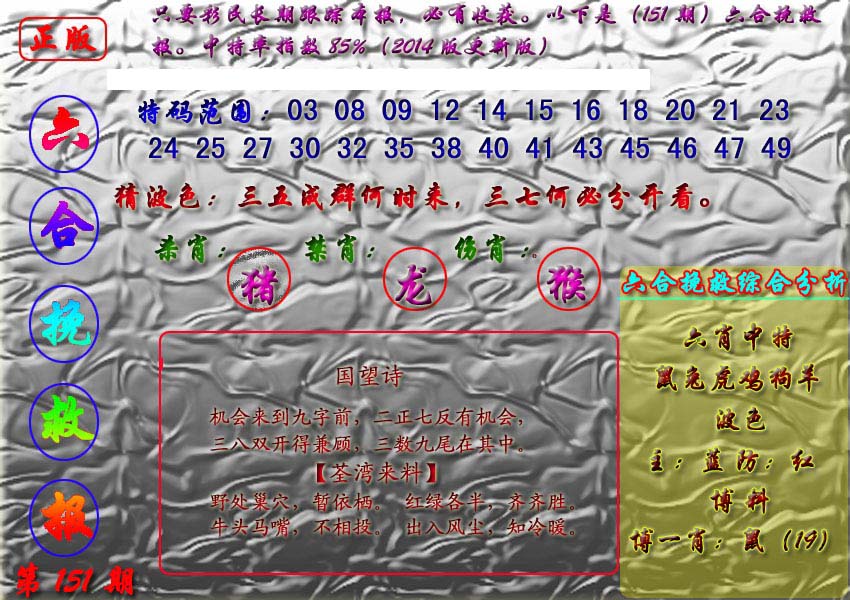 正版
只要彩民长期跟踪本报，必有收获。以下是（151期）六合挽救
报。中特率指数85%（2014版更新版）
六合挽救报
第151期
特码范围：03 08 09 12 14 15 16 18 20 21 23
24 25 27 30 32 35 38 40 41 43 45 46 47 49
猜波色：三五成群何时来，三七何必分开看。
杀肖：猪 禁肖：龙 伤肖：猴
国望诗
机会来到九字前，二正七反有机会，
三八双开得兼顾，三数九尾在其中。
【荃湾来料】
野处巢穴，暂依栖。 红绿各半，齐齐胜。
牛头马嘴，不相投。 出入风尘，知冷暖。
六合挽救综合分析
六肖中特
鼠兔虎鸡狗羊
波色
主：蓝防：红
博料
博一肖：鼠（19）